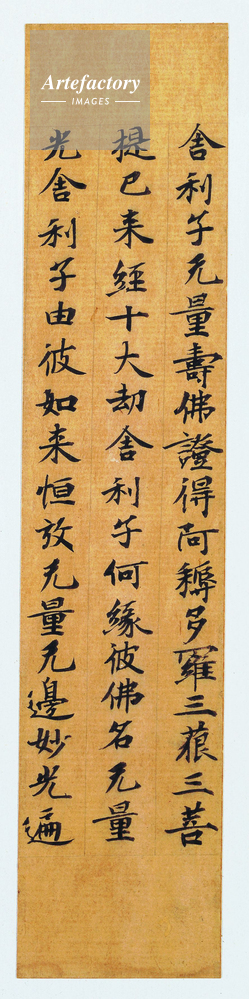 舎利子无量壽佛證得阿耨多羅三藐三菩
提已来經十大劫舎利子何縁彼佛名无量
光舎利子由彼如来恒放无量无邊妙光遍
Artefactory
IMAGES